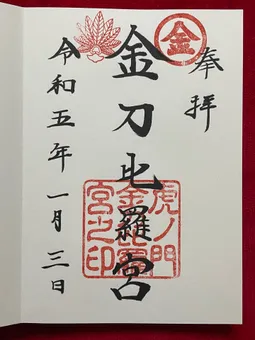 奉拝
金
金刀比羅宮
虎ノ門
宮之印
令和五年一月三日